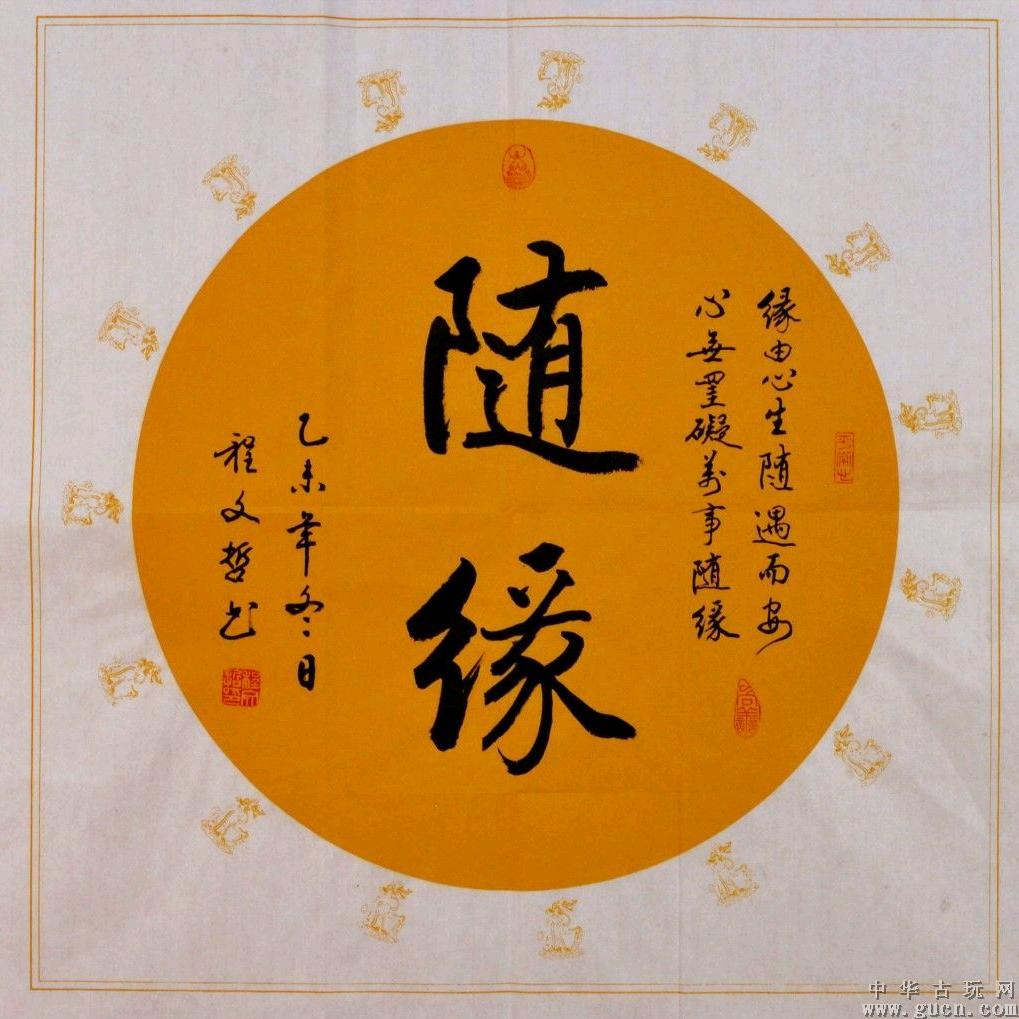 随缘
缘由心生随遇而安
心無罣礙萬事随缘
乙未年冬日
程文哲书
中华古玩网
www.gucn.com